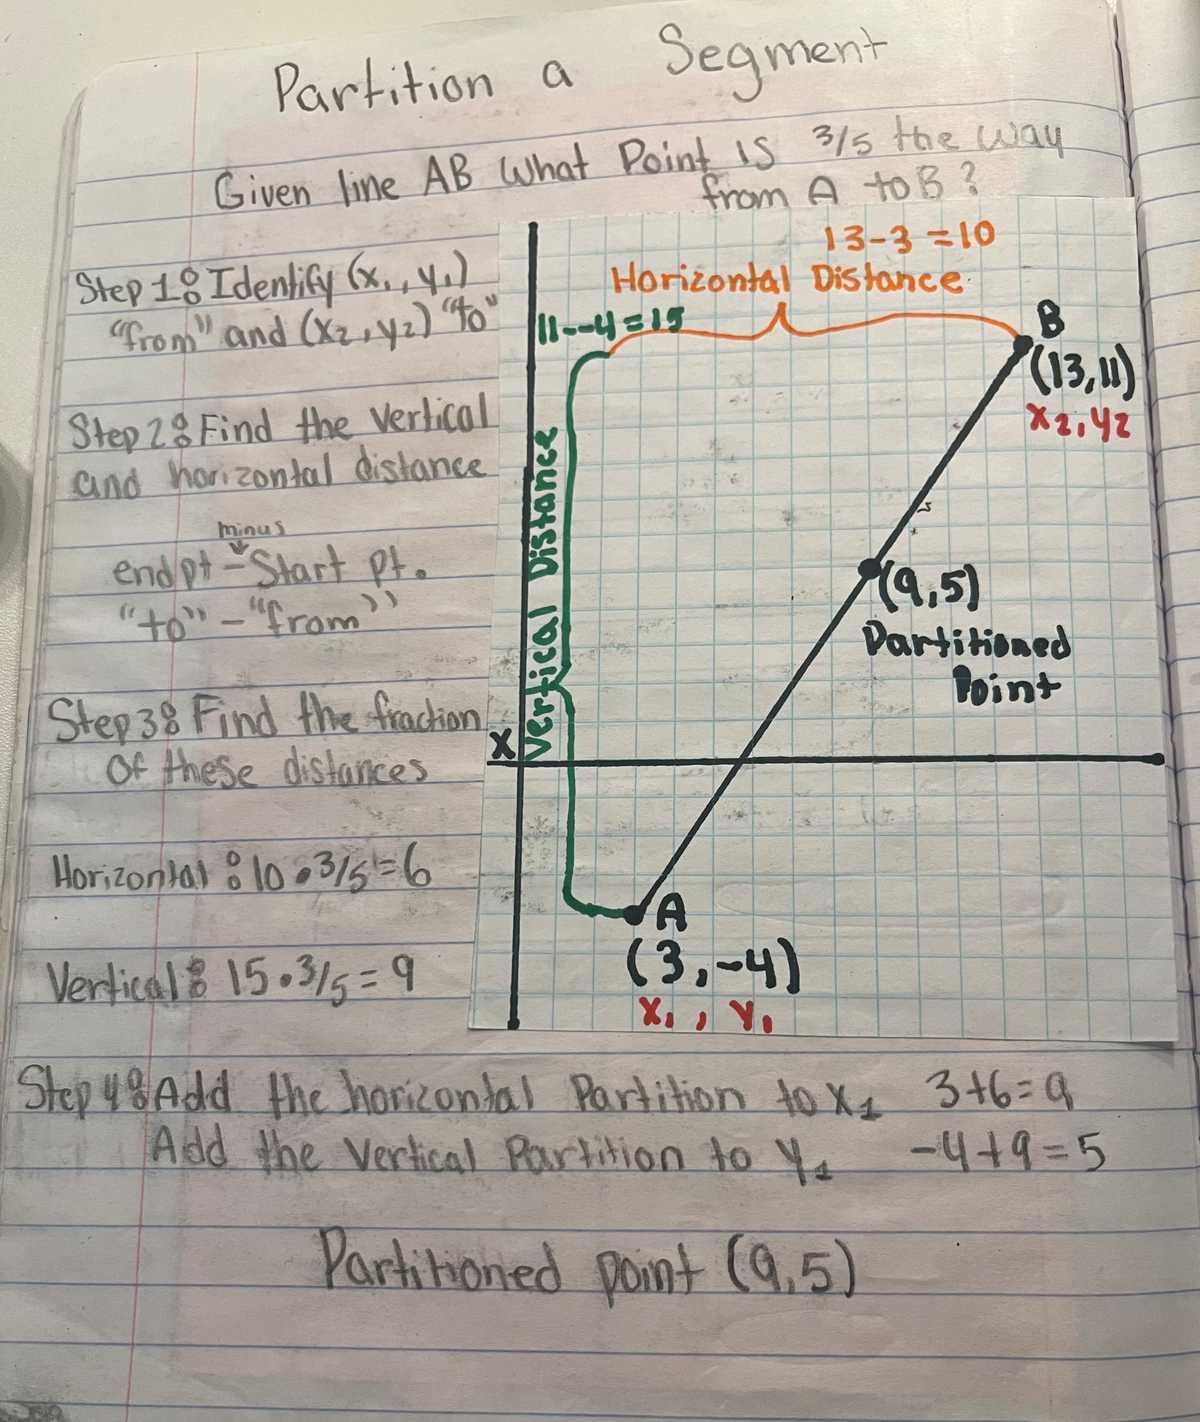 Partition a Segment
Given line AB What Point is 3/5 the way
from A to B?
Step 1: Identify (x₁, y₁)
"from" and (x₂, y₂) "to"
Step 2: Find the vertical
and horizontal distance
minus
endpt - Start pt.
"to" - "from"
Step 3: Find the fraction
Of these distances
Horizontal: 10 • 3/5 = 6
Vertical: 15 • 3/5 = 9
13-3 =10
Horizontal Distance
11--4=15
Vertical Distance
B
(13,11)
x₂, y₂
(9,5)
Partitioned
Point
X
A
(3,-4)
x₁, y₁
Step 4: Add the horizontal Partition to x₁ 3+6=9
Add the Vertical Partition to y₁ -4+9=5
Partitioned point (9,5)